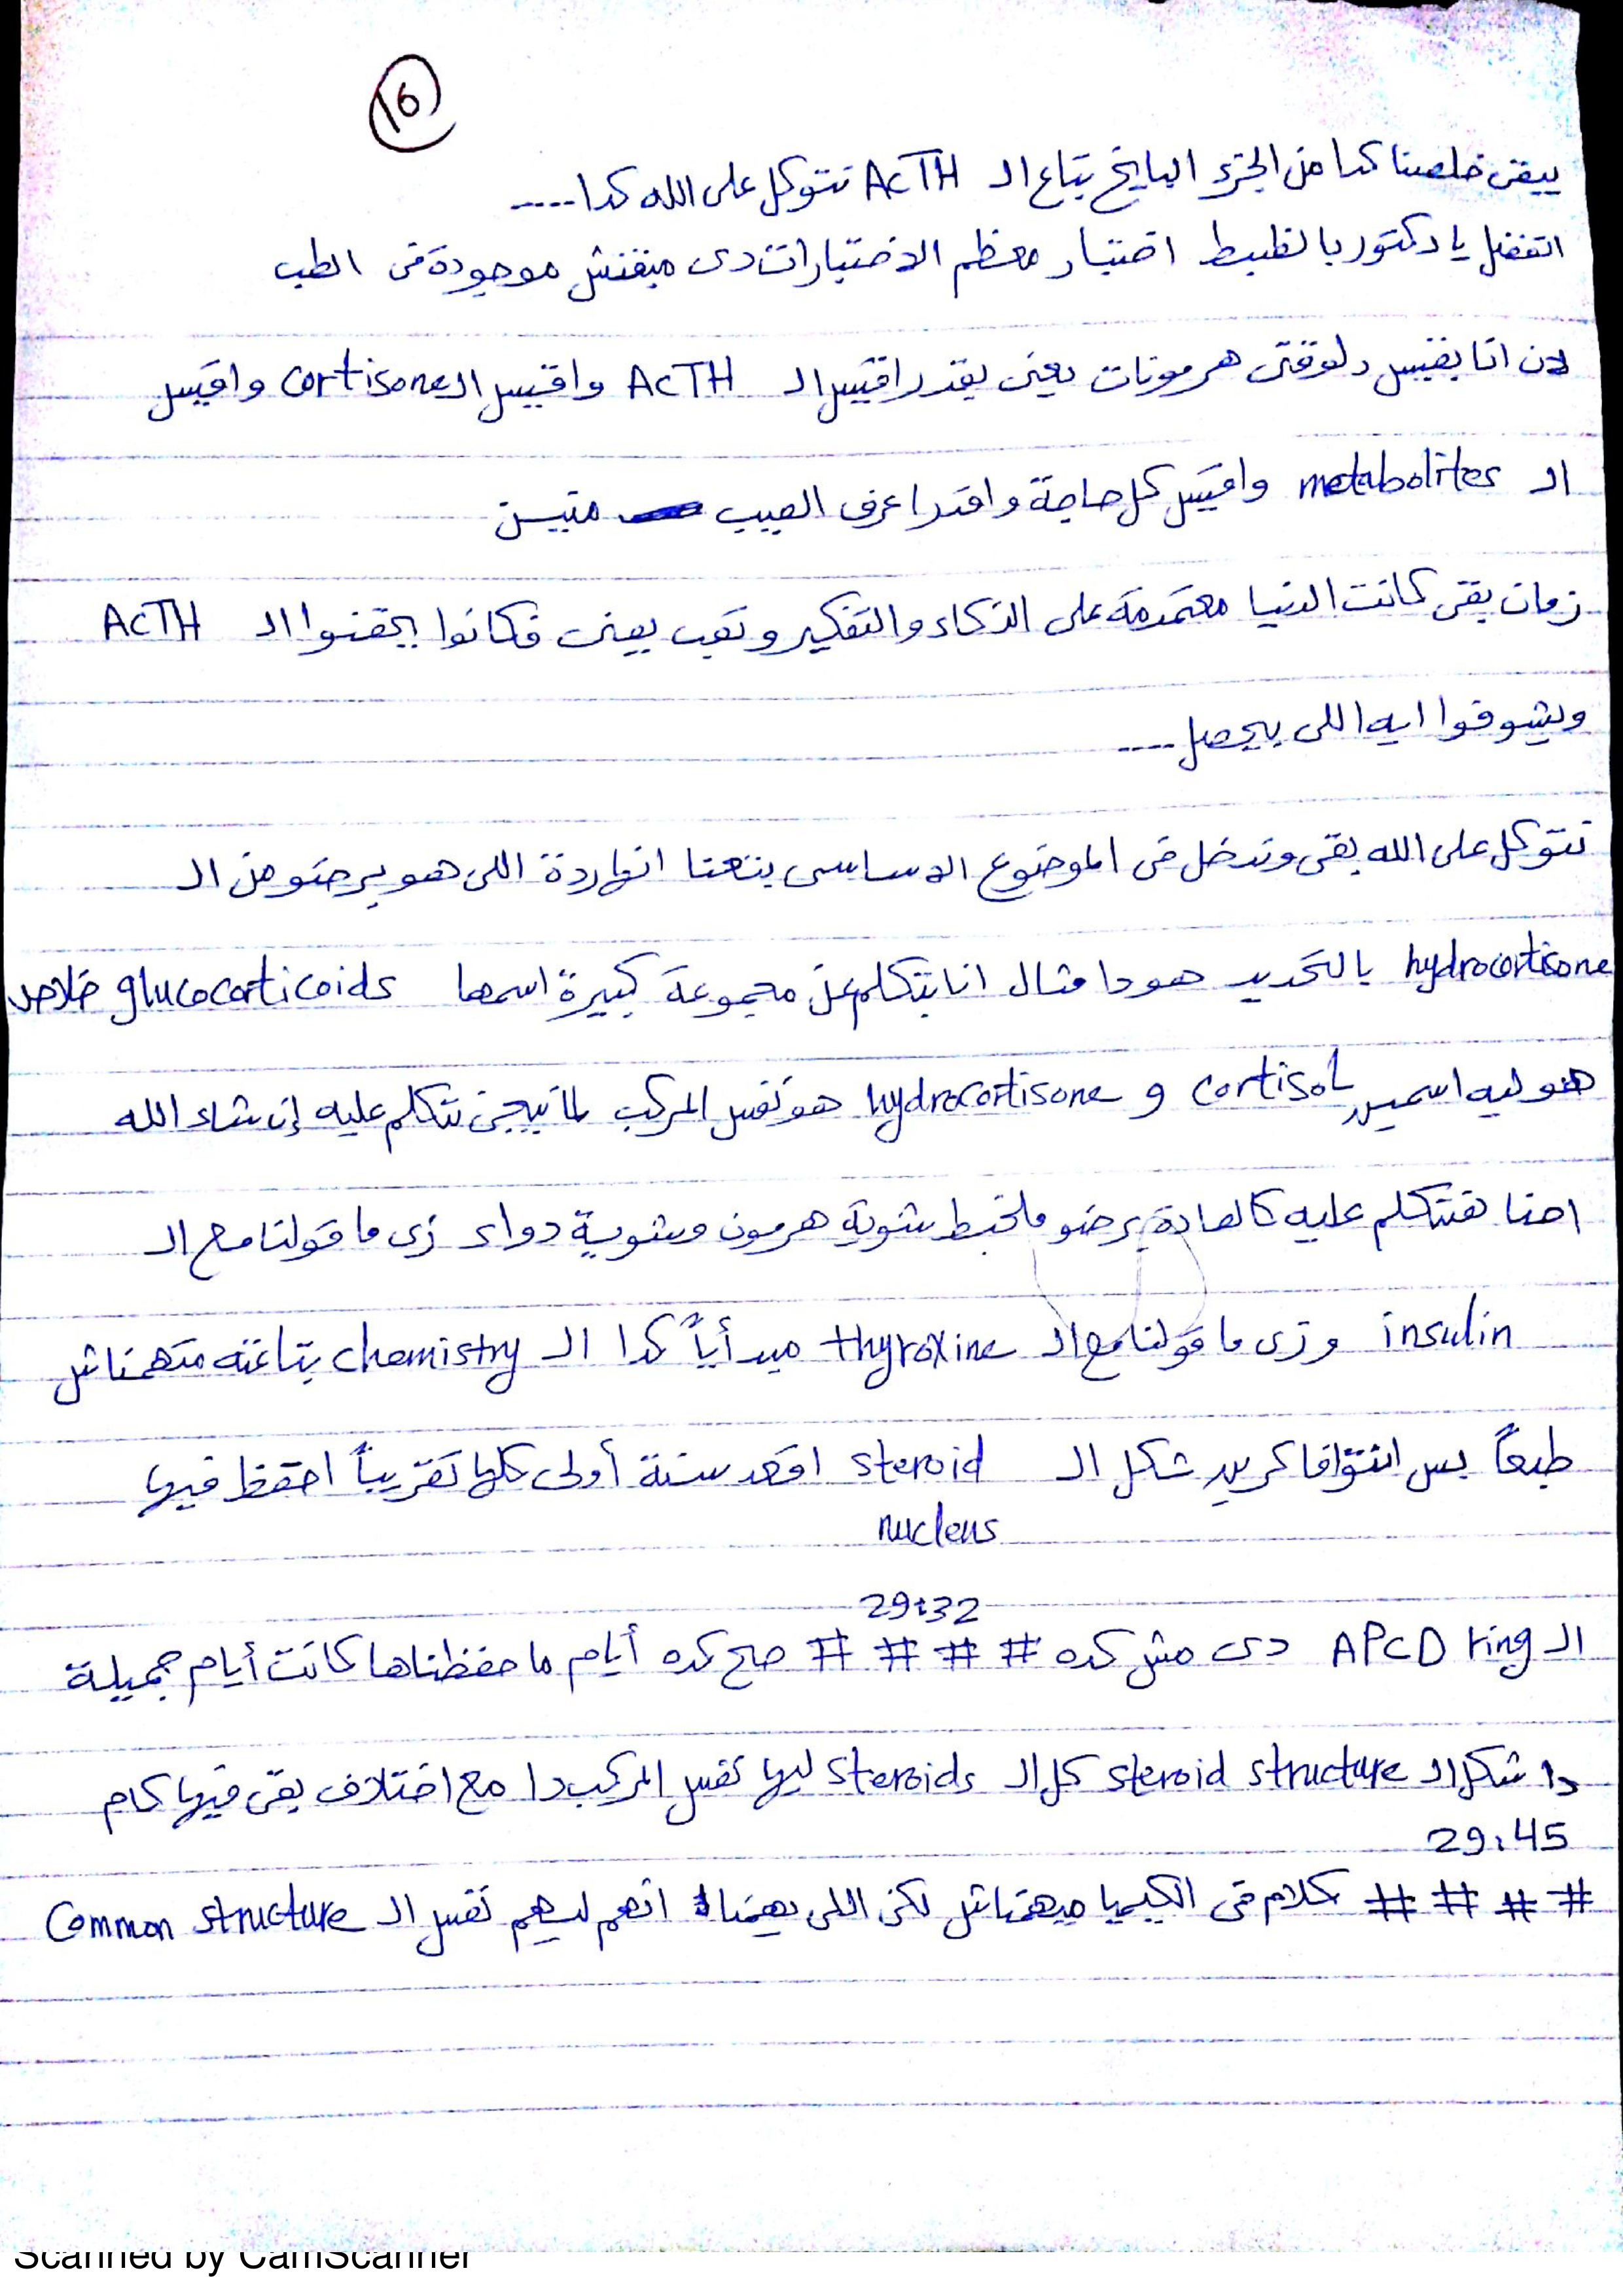 16
يبقى خلصنا كدا من الجزء البايخ بتاع الـ ACTH نتوكل على الله كدا.....
اتفضل يا دكتور بالظبط اختيار معظم الاختبارات دى مبقتش موجودة فى الطب
لان انا بقيس دلوقتى هرمونات يعنى بقدر اقيس الـ ACTH واقيس الـ cortisone واقيس
الـ metabolites واقيس كل حاجة واقدر اعرف العيب منين
زمان بقى كانت الدنيا معتمدة على الذكاء والتفكير وتعب يعنى فكانوا بيحقنوا الـ ACTH
ويشوفوا ايه اللى بيحصل....
نتوكل على الله بقى وندخل فى الموضوع الاساسى بتعنا انهاردة اللى هو برضو من الـ
hydrocortisone بالتحديد هو دا مثال انا بتكلم عن مجموعة كبيرة اسمها glucocorticoids خلاص
هو ليه اسمين cortisol و hydrocortisone هو نفس المركب لما نيجى نتكلم عليه إن شاء الله
احنا هنتكلم عليه كالعادة برضو ملخبط شوية هرمون وشوية دواء زى ما قولنا مع الـ
insulin وزى ما قولنا مع الـ thyroxine مبدأياً كدا الـ chemistry بتاعته متهمناش
طبعاً بس انتوا فاكرين شكل الـ steroid اقعد سنة أولى كلها تقريباً احفظ فيها
nucleus
29:32
الـ APCD ring دى مش كده # # # # صح كده أيام ما حفظناها كانت أيام جميلة
دا شكل الـ steroid structure كل الـ steroids ليها نفس المركب دا مع اختلاف بقى فيها كام
29:45
# # # # كلام فى الكيميا ميهمناش لكن اللى يهمنا انهم ليهم نفس الـ Common structure
Scanned by CamScanner